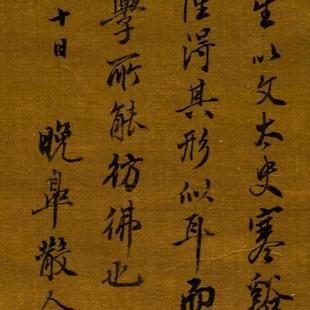 生以文太史寒谿
得其形似耳而
學所能彷彿也
十日
晚皋散人